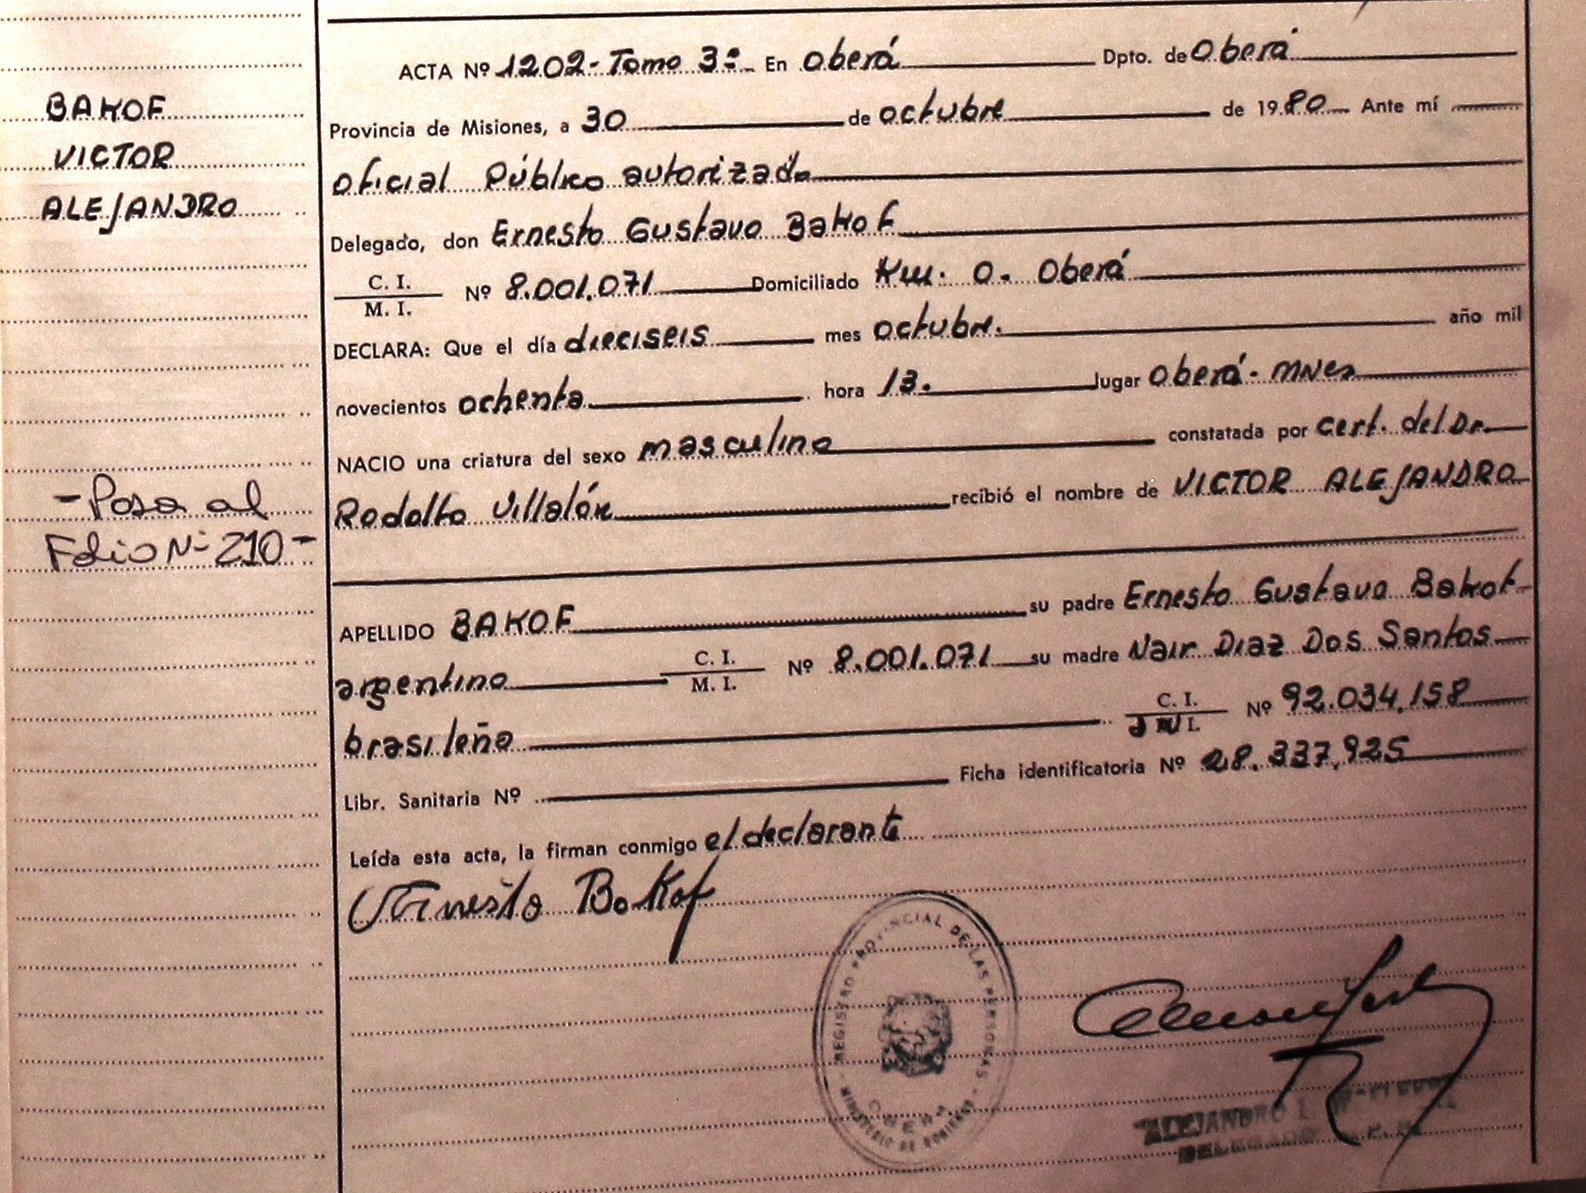 BAKOF
VICTOR
ALEJANDRO
-Pasa al
Folio Nº 210-
ACTA Nº 1202- Tomo 3º En Oberá Dpto. de Oberá
Provincia de Misiones, a 30 de octubre de 1980 Ante mí
Oficial Público autorizado
Delegado, don Ernesto Gustavo Bakof
C. I.
M. I. Nº 8.001.071 Domiciliado Km. 0. Oberá
DECLARA: Que el día dieciseis mes octubre. año mil
novecientos ochenta hora 13. lugar Oberá- Mnes
NACIO una criatura del sexo masculino constatada por cert. del Dr.
Rodolfo Villalón recibió el nombre de VICTOR ALEJANDRO
APELLIDO BAKOF su padre Ernesto Gustavo Bakof
argentino C. I.
M. I. Nº 8.001.071 su madre Nair Diaz Dos Santos
brasileña C. I.
Nº 92.034.158
Libr. Sanitaria Nº Ficha identificatoria Nº 28.337.925
Leída esta acta, la firman conmigo el declarante
Ernesto Bakof
REGISTRO PROVINCIAL DE LAS PERSONAS
OBERA
MINISTERIO DE GOBIERNO
ALEJANDRO